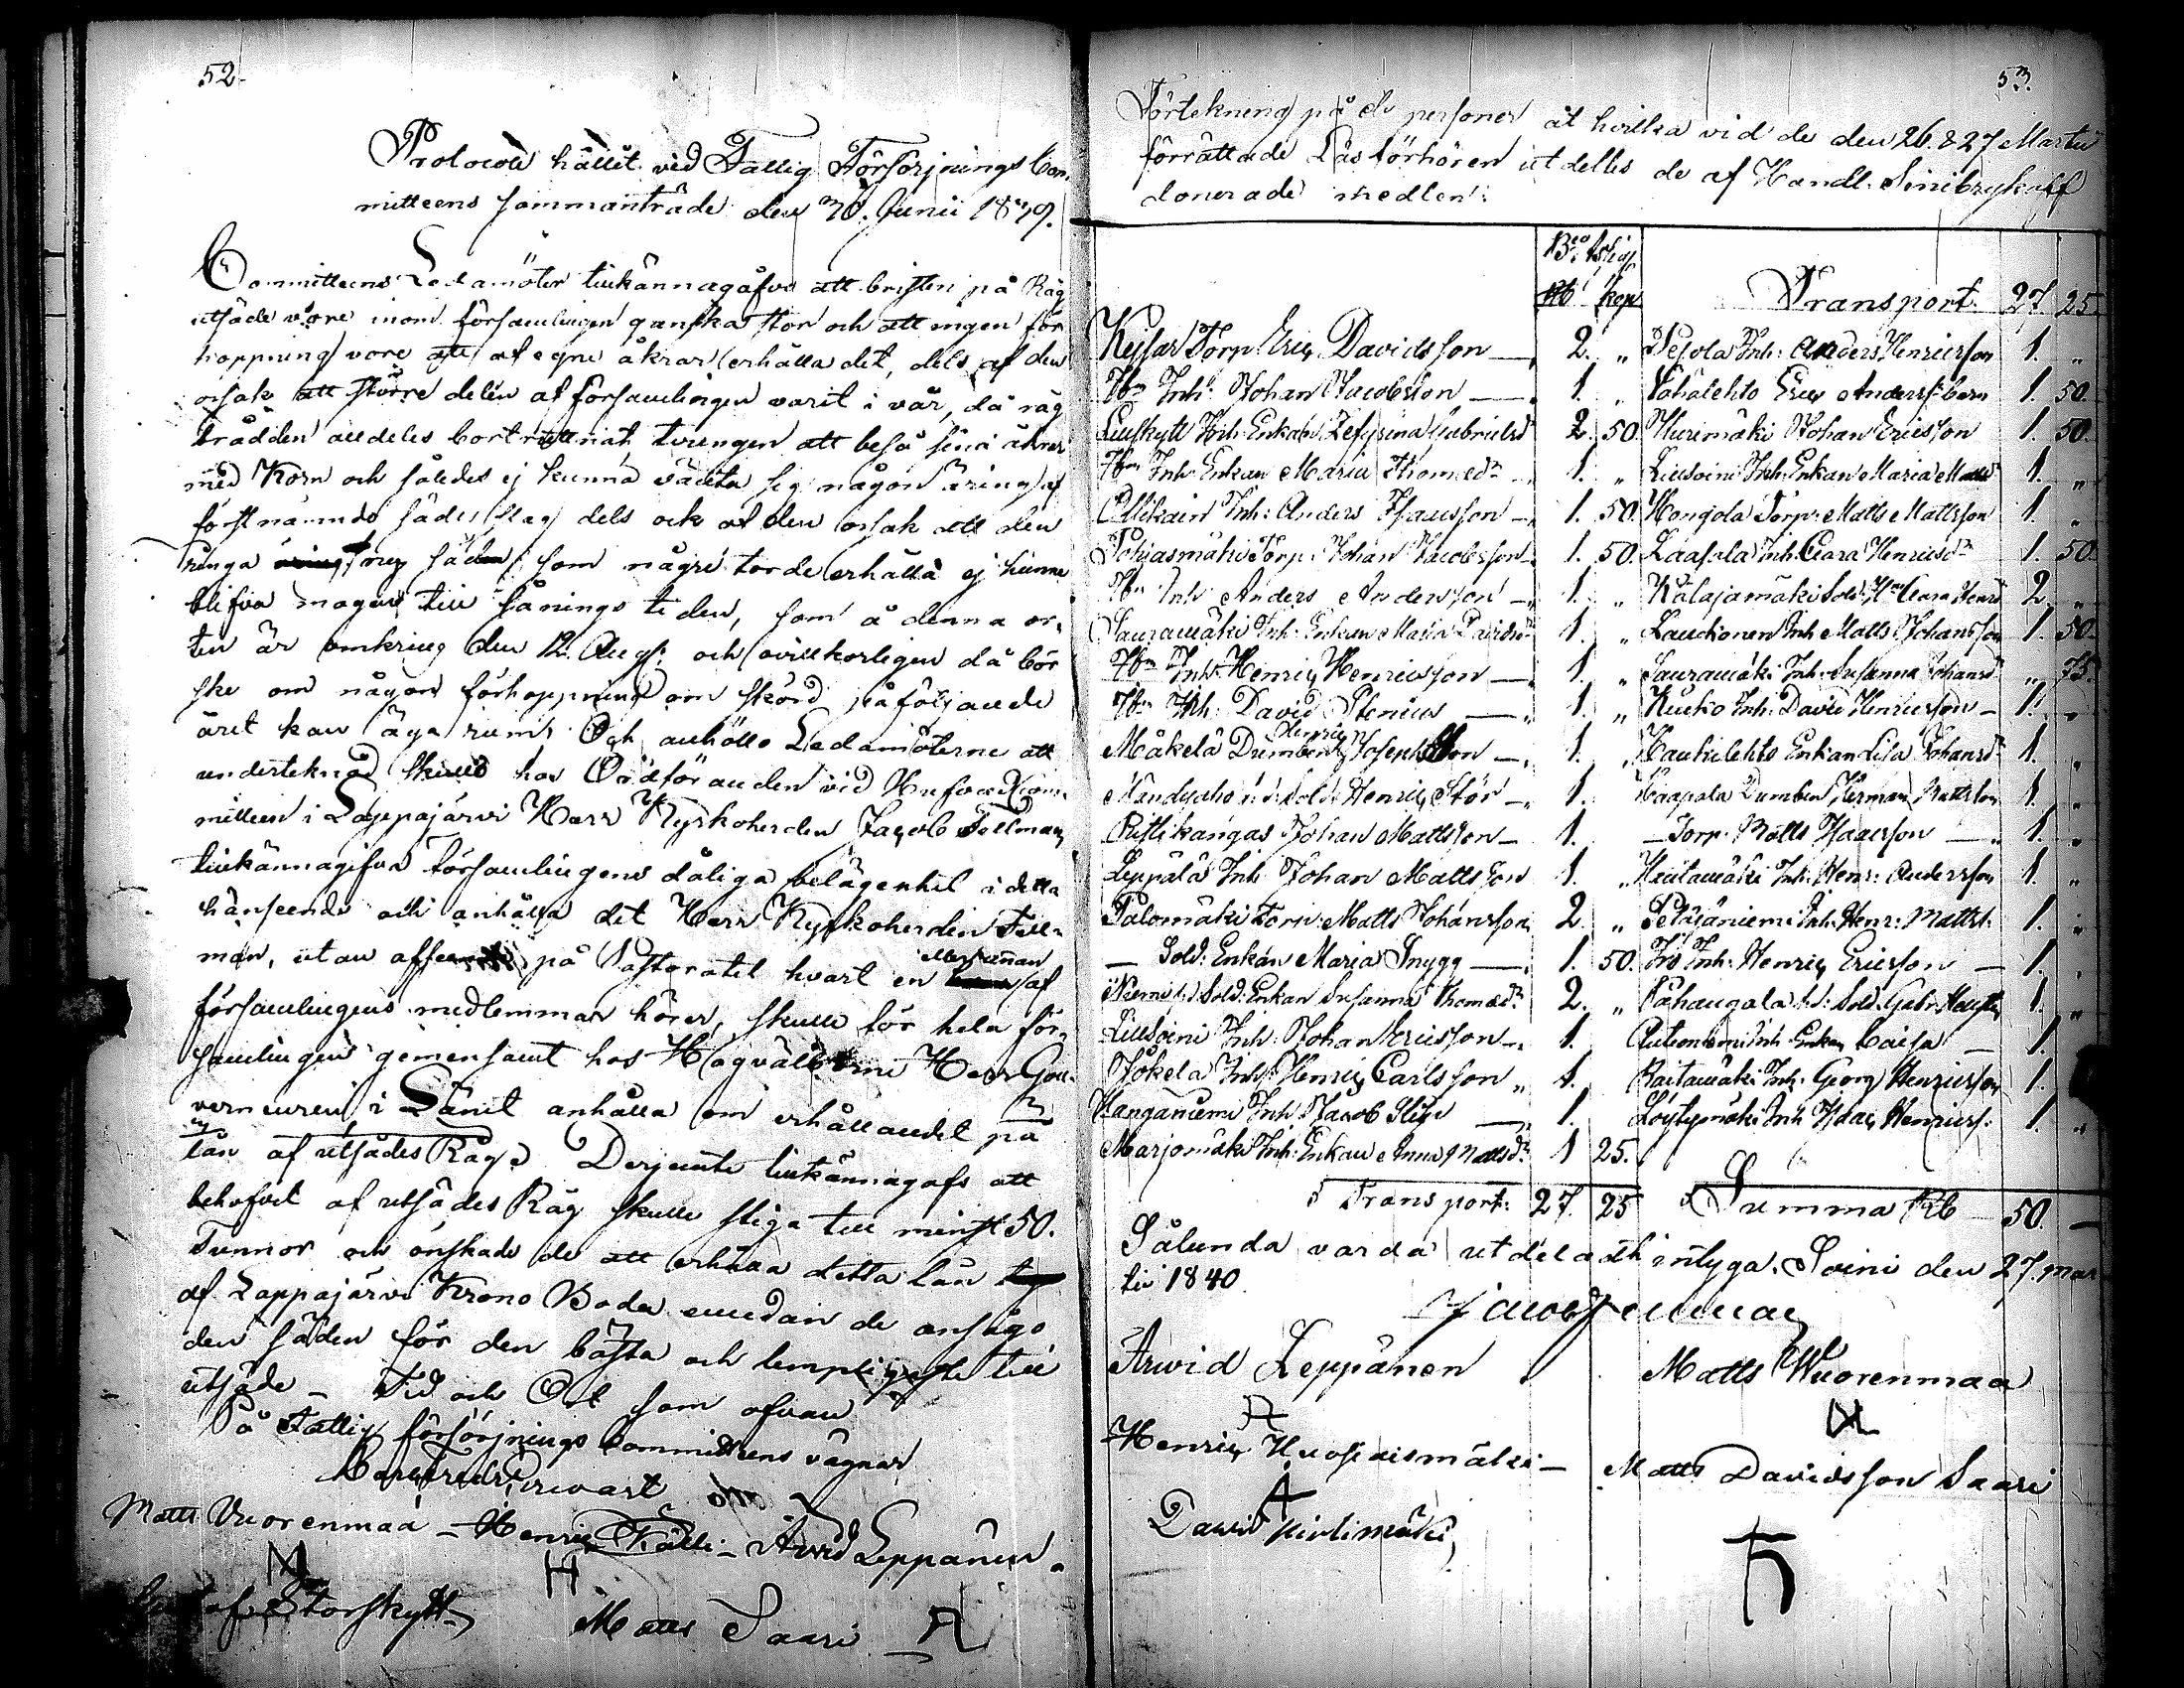 52.
Protocoll hållit vid Fattig Försörjnings Com-
mitteens sammanträde den 30. Junii 1839.
Committeens Ledamöter tillkännagåfvo att bristen på Råg
utsäde vore inom församlingen ganska stor och att ingen för
hoppning vore att af egne åkrar erhålla det, dels af den
orsak att större delen af församlingen varit i vår, då råg
brådden alldeles bortruttnat, tvungen att beså sina åkrar
med Korn och således ej kunna vänta sig någon äring af
förstnämnde sädesslag dels ock af den orsak att den
ringa råg säden som några torde erhålla ej hinner
blifva mogen till såningstiden, som å denna or-
ten är omkring den 12. Aug: och ovillkorligen då bör
ske om någon förhoppning om skörd påföljande
året kan äga rum. Och anhöllo Ledamöterne att
undertecknad skulle hos Ordföranden vid Hufvud Com-
mitteen i Lappajärvi Herr Kyrkoherden Jacob Fellman
tillkännagifva församlingens dåliga belägenhet i detta
hänseende och anhålla det Herr Kyrkoherden Fell-
man, utan afseende på Pastoratet hvart en eller annan af
församlingens medlemmar hörer, skulle för hela för-
samlingen gemensamt hos Högvälborne Herr Gou-
verneuren i Länet anhålla om erhållandet på
lån af utsädes Råg. Derjemte tillkännagafs att
behofvet af utsädes Råg skulle stiga till minst 50.
Tunnor och önskade de att erhålla detta lån
af Lappajärvi Krono Boda emedan de ansågo
den säden för den bästa och lempligaste till
utsäde _ Tid och Ort som ofvan
På Fattigförsörjnings Committeens vägnar
Matts Vuorenmaa _ Henric Källi _ Arvid Leppänen.
Storskytt
Matts Saari
53.
Förtekning på de personer åt hvilka vid de den 26. & 27 Martii
förrättade Läsförhören utdeltes de af Handl. Sinibrykoff
donerade medlen:
Rb kop
Transport. 27 25.
Keisar Torp. Eric Davidsson _ 2. „
Pesola Inh: Anders Henricsson 1. „
Inh: Johan Jacobsson _ 1. „
Vähälehto Eric Anderss: barn 1. 50.
Lillskytt Inh. Enkan Zefyrina Gabrielsd 2. 50.
Hurimäki Johan Ericsson 1. 50.
Inh. Enkan Maria Thomædr 1. „
Lillsoini Inh. Enkan Maria Mattsd 1. „
Ollikain Inh: Anders Isacsson _ 1. 50.
Hongola Torp. Matts Mattsson 1. „
Pohiasmäki Torp. Johan Jacobsson 1. 50.
Laasala Inh. Clara Henricsdr 1. 50.
Inh Anders Andersson _ 1. „
Kålajamäki Sold. Clara Henrsd 2. „
Sauramäki Inh. Enkan Maria Davidsdr 1. „
Lauckonen Inh Matts Johansson 1. 50.
Inh. Henric Henricsson _ 1. „
Sauramäki Inh. Susanna Johansd „ 75.
Inh. David Stenius _ 1. „
Kuoko Inh. David Henricsson _ 1. „
Henric
Mäkelä Drumben Josephsson _ 1. „
Haukilehto Enkan Lisa Johansd 1. „
Mändyaho Sold: Henric Stör _ 1.
Haapala Dumben Herman Mattsson 1. „
Pustikangas Johan Mattsson _ 1.
_ Torp. Matts Isacsson _ 1. „
Leppälä Inh Johan Mattsson 1. „
Hautamäki Inh. Henr: Andersson 1. „
Palomäki Torp: Matts Johansson 2. „
Petäjäniemi Inh. Henr: Mattss. 1. „
_ Sold: Enkan Maria Snygg _ 1. 50.
Iro Inh. Henric Ericsson _ 1.
Niemi Sold. Enkan Susanna Thomædr 2. „
Påhangala Sold. Gabr. 1. „
Lillsoini Inh. Johan Ericsson _ 1.
Autioniemi Inh. Enkan Caisa _ 1.
Jokela Inh. Henric Carlsson „ 1.
Raitamäki Inh. Georg Henricsson 1.
Kanganiemi Inh. Jacob _ 1.
Löytymäki Inh Isaac Henricss. 1. „
Marjomäki Inh. Enkan Anna Mattsdr 1 25.
Transport. 27. 25
Summa Rb 50. _
Sålunda varda utdelade intyga. Soini den 27. Mar
tii 1840.
Arvid Leppänen
Matts Wuorenmaa
Henric Kuosaismäki _
Matts Davidsson Saari
David Kivlimäki